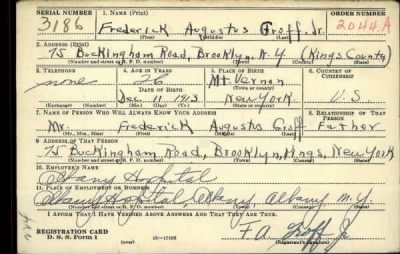 SERIAL NUMBER 1. NAME (Print) ORDER NUMBER
3186 Frederick Augustus Groff, Jr. 2044A
(First) (Middle) (Last)
2. ADDRESS (Print)
75 Buckingham Road, Brooklyn, N.Y (Kings County)
(Number and street or R. F. D. number) (Town) (County) (State)
3. TELEPHONE 4. AGE IN YEARS 5. PLACE OF BIRTH 6. COUNTRY OF CITIZENSHIP
none 26 Mt. Vernon
DATE OF BIRTH (Town or county)
Dec 11 1913 New York U.S.
(Exchange) (Number) (Mo.) (Day) (Yr.) (State or country)
7. NAME OF PERSON WHO WILL ALWAYS KNOW YOUR ADDRESS 8. RELATIONSHIP OF THAT PERSON
Mr. Frederick Augustus Groff Father
(Mr., Mrs., Miss) (First) (Middle) (Last)
9. ADDRESS OF THAT PERSON
75 Buckingham Road, Brooklyn, Kings, New York
(Number and street or R. F. D. number) (Town) (County) (State)
10. EMPLOYER'S NAME
Albany Hospital
11. PLACE OF EMPLOYMENT OR BUSINESS
Albany Hospital, Albany, Albany, N.Y.
(Number and street or R. F. D. number) (Town) (County) (State)
I AFFIRM THAT I HAVE VERIFIED ABOVE ANSWERS AND THAT THEY ARE TRUE.
REGISTRATION CARD
D. S. S. Form 1 (over) F A Groff Jr
(Registrant's signature)